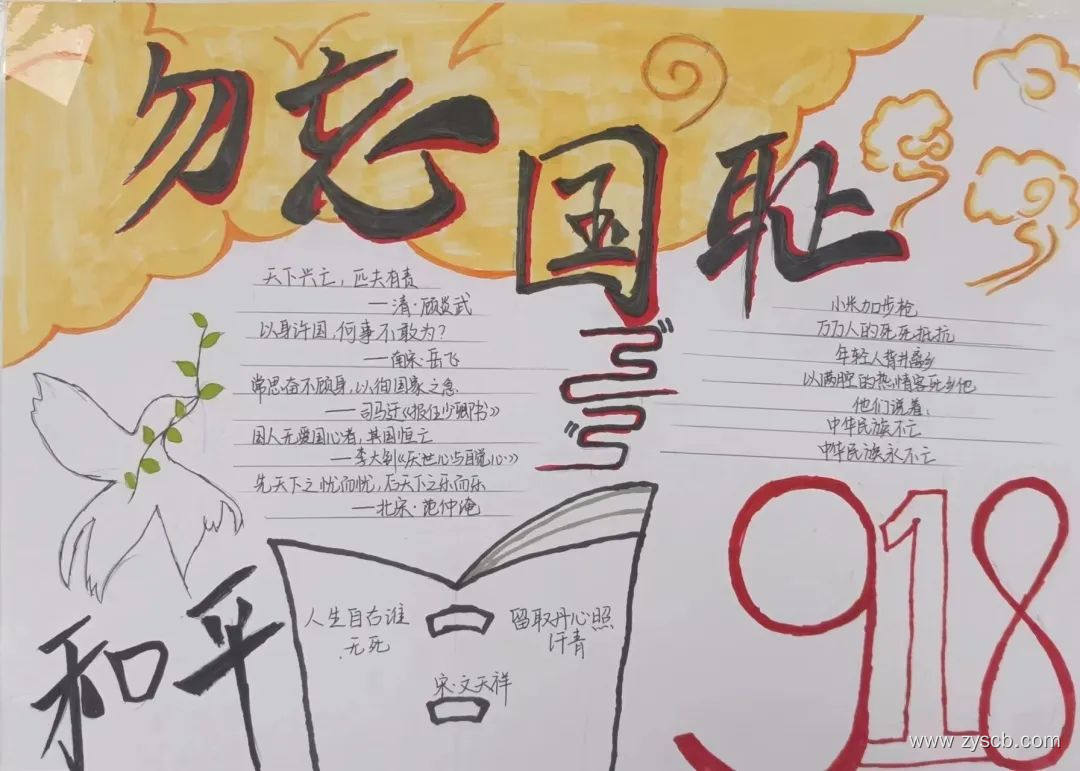 勿忘国耻
天下兴亡，匹夫有责
—清·顾炎武
以身许国，何事不敢为？
—南宋·岳飞
常思奋不顾身，以徇国家之急
——司马迁《报任少卿书》
国人无爱国心者，其国恒亡
—李大钊《厌世心与自觉心》
先天下之忧而忧，后天下之乐而乐
—北宋·范仲淹
小米加步枪
万万人的死死抵抗
年轻人背井离乡
以满腔的热情客死乡他
他们说着：
中华民族不亡
中华民族永不亡
和平
人生自古谁
无死
留取丹心照
汗青
宋·文天祥
918
www.zyscb.com